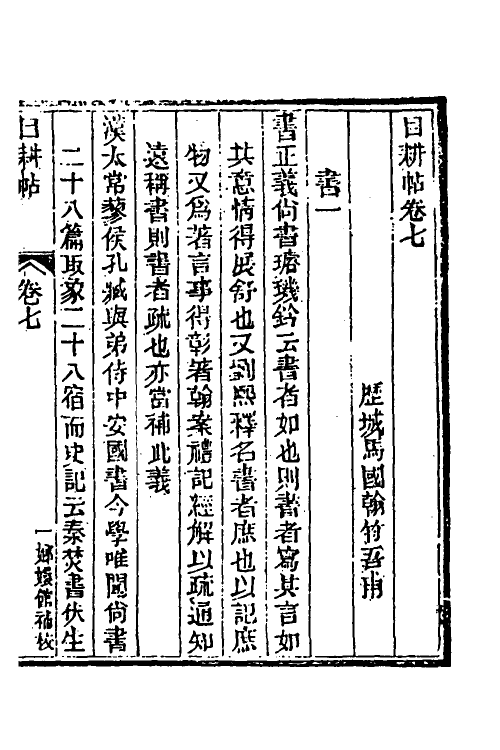 目耕帖卷七
歷城馬國翰竹吾甫
書一
書正義尙書璿璣鈐云書者如也則書者寫其言如
其意情得展舒也又劉熙釋名書者庶也以記庶
物又爲著言事得彰著翰案禮記經解以疏通知
遠稱書則書者疏也亦當補此義
漢太常蓼侯孔臧與弟侍中安國書今學唯聞尙書
二十八篇取象二十八宿而史記云秦焚書伏生
目耕帖
卷七
一
嫏嬛館補校